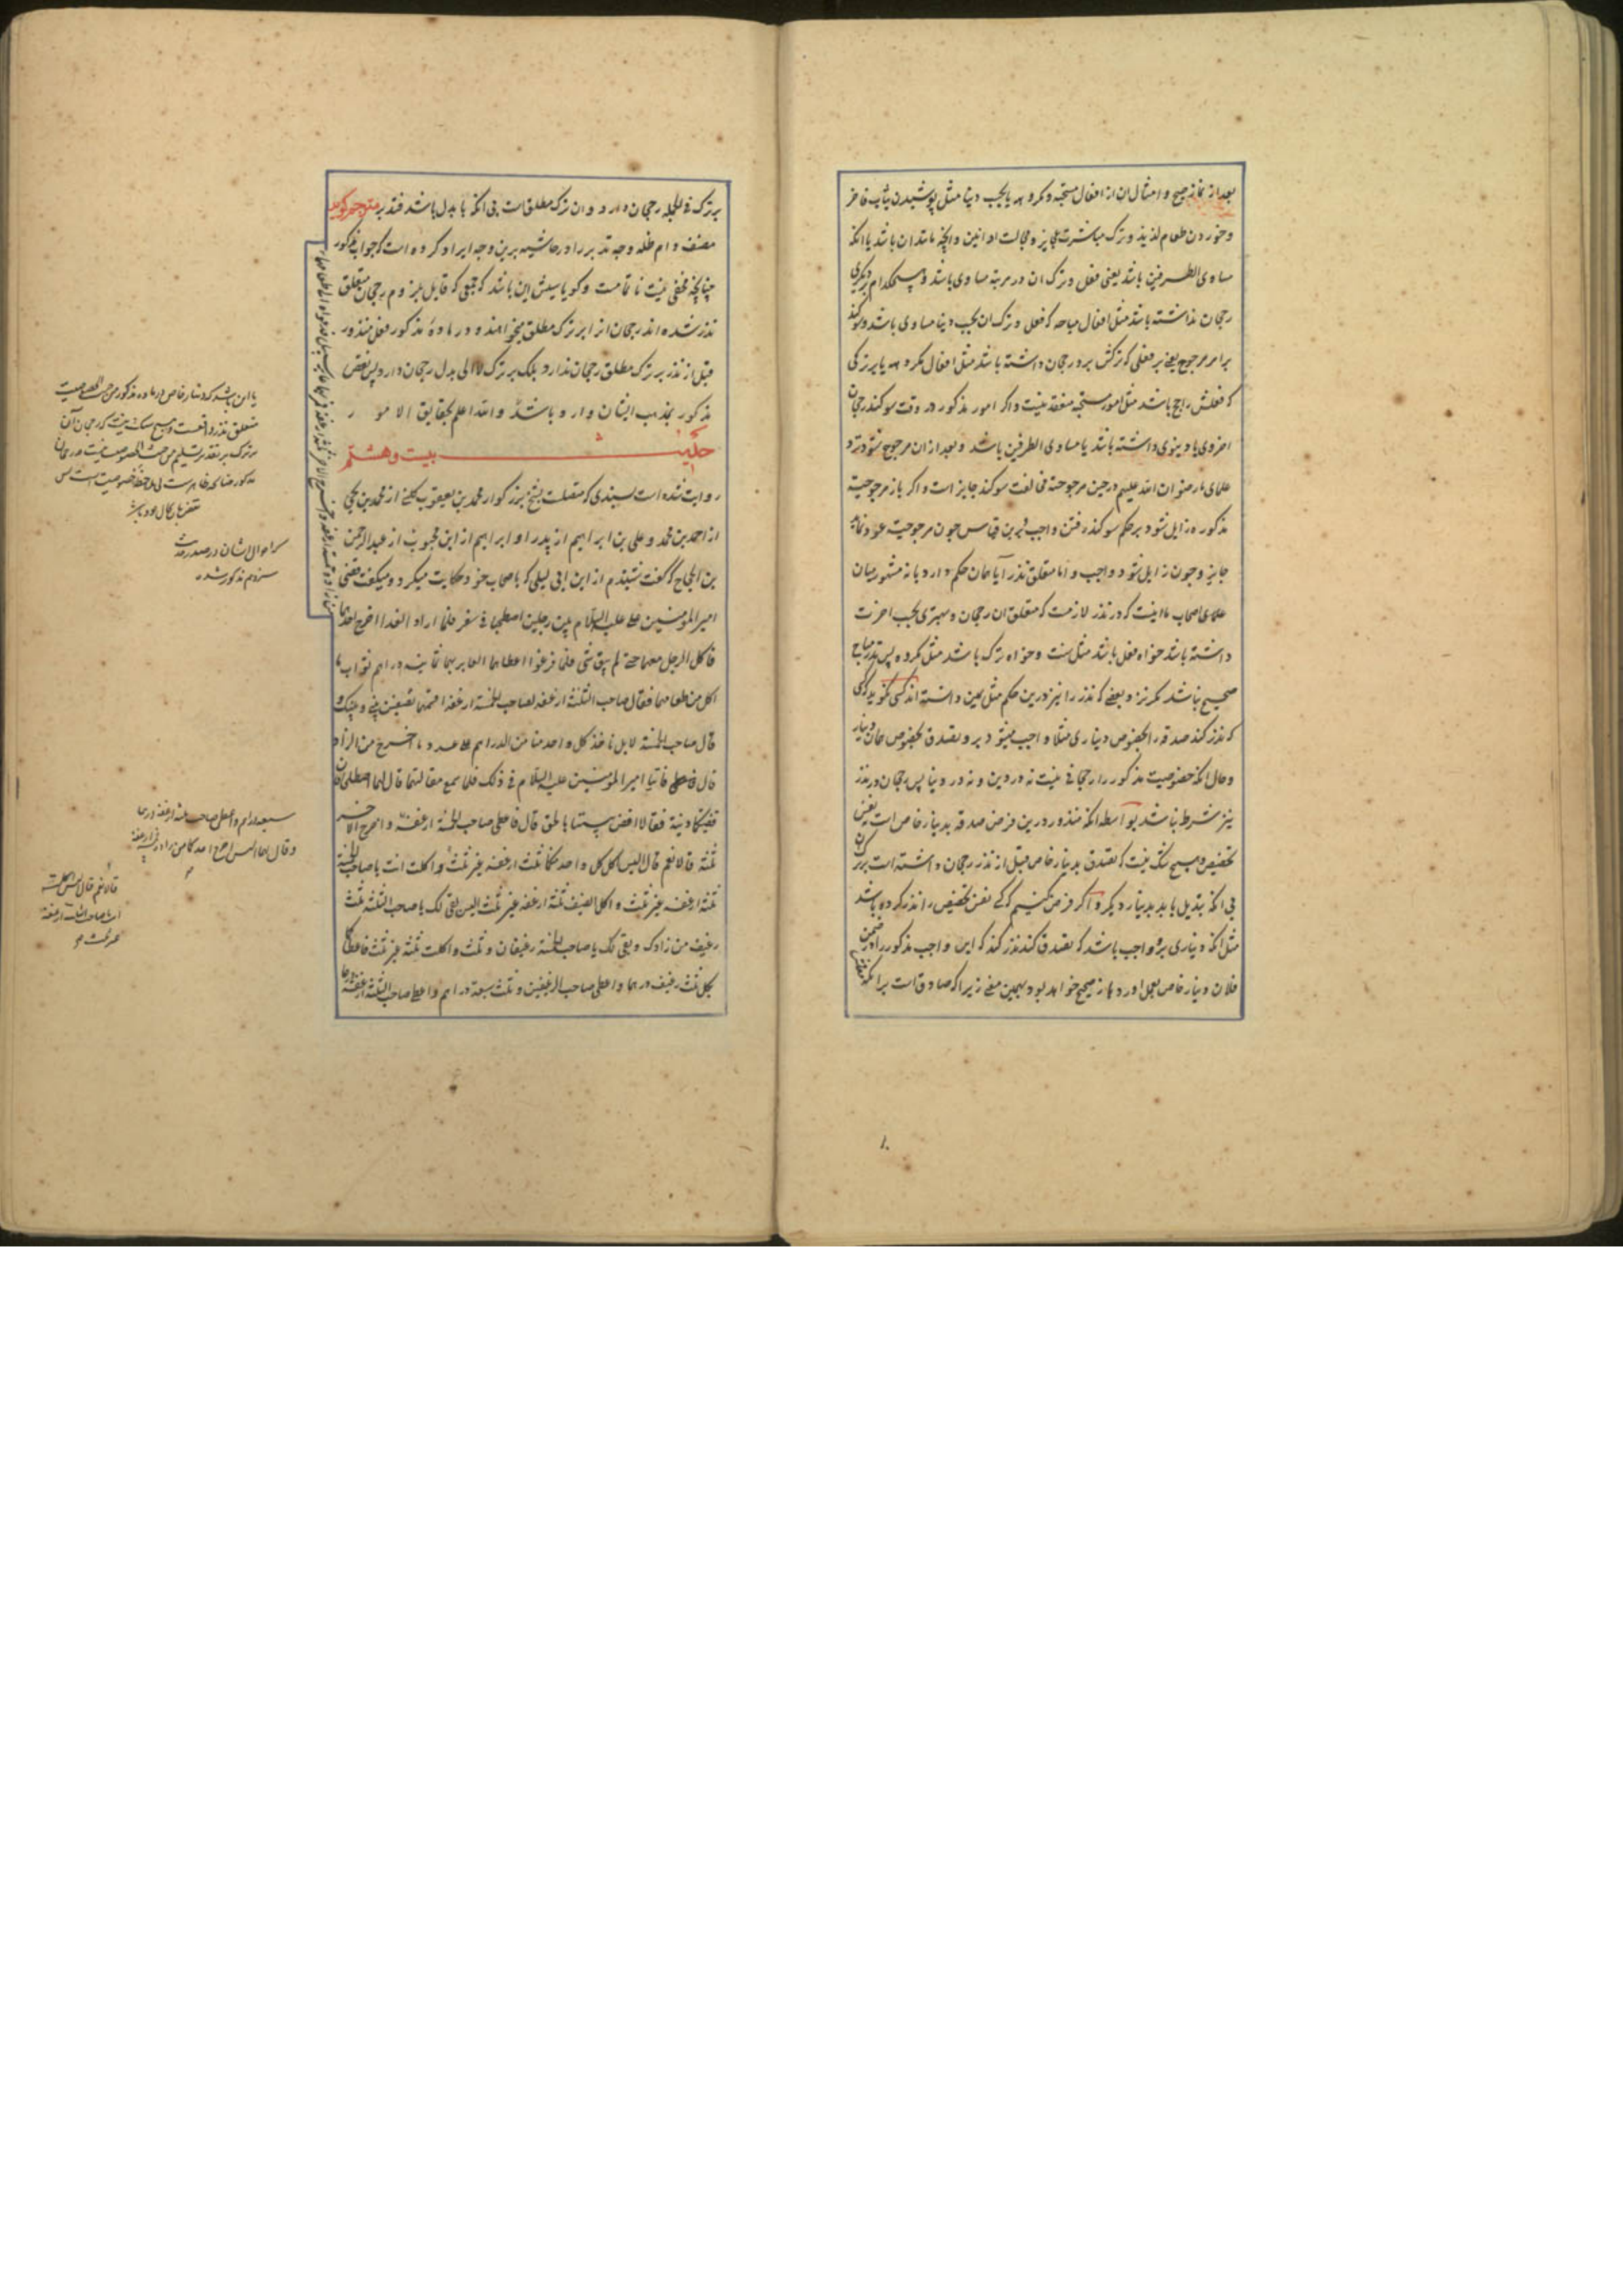 بعد از نماز صبح و امثال ان از افعال مستحبه و مکروهه یا بحسب دنیا مثل پوشیدن ثیاب فاخر
و خوردن طعام لذیذ و ترک مباشرت عجایز و مجالست اراذلین و انچه مانند ان باشد یا انکه
مساوی الطرفین باشد یعنی فعل و ترک ان در مرتبه مساوی باشد و هیچکدام بر دیکری
رجحان نداشته باشد مثل افعال مباحه که فعل و ترک ان بحسب دنیا مساوی باشد و سوکند
بر امر مرجوح یعنی بر فعلی که ترکش برو رجحان داشته باشد مثل افعال مکروهه یا بر ترکی
که فعلش راجح باشد مثل امور مستحبه منعقد نیست و اکر امور مذکوره در وقت سوکند رجحان
اخروی یا دنیوی داشته باشد یا مساوی الطرفین باشد و بعد از ان مرجوح شود نزد
علمای ما رضوان الله علیهم در حین مرجوحیة مخالفت سوکند جایز است و اکر باز مرجوحیة
مذکوره زایل شود بر حکم سوکند رفتن واجب و برین قیاس چون مرجوحیت عود نماید
جایز و چون زایل شود واجب و اما متعلق نذر آیا همان حکم دارد یا نه مشهور میان
علمای اصحاب ما اینست که در نذر لازمست که متعلق ان رجحان و بهتری بحسب اخرت
داشته باشد خواه فعل باشد مثل سنت و خواه ترک باشد مثل مکروه پس نذر مباح
صحیح نباشد و بعضی که نذر را نیز درین حکم مثل یمین دانسته اند کسی نکوید که کسی
که نذر کند صدقه را بخصوص دیناری مثلا واجب میشود برو تصدق بخصوص همان دینار
و حال انکه خصوصیت مذکور را رجحانی نیست نه در دین و نه در دنیا پس رجحان در نذر
نیز شرط نباشد بواسطه انکه منذور درین فرض صدقه بدینار خاص است یعنی
تخصیص و هیچ شک نیست که تصدق بدینار خاص قبل از نذر رجحان داشته است بر ترک ان
بی انکه تبدیل یابد بدینار دیکر و اکر فرض کنیم که کسی نفس تخصیص را نذر کرده باشد
مثل انکه دیناری برو واجب باشد که تصدق کند نذر کند که این واجب مذکور را در ضمن
فلان دینار خاص بعمل اورد باز صحیح خواهد بود بهمین معنی زیرا که صادق است بر انکه
بر ترک فی الجمله رجحان دارد و ان ترک مطلق است بی انکه با بدل باشد فتدبر مترجم کوید
مصنف دام ظله وجه تدبر را در حاشیه برین وجه ایراد کرده است که جواب مذکور
چنانچه مخفی نیست ناتمامست و کویا سببش این باشد که جمعی که قایل بلزوم رجحان متعلق
نذر شده اند رجحان انرا بر ترک مطلق میخواهند و در ماده مذکور فعل منذور
قبل از نذر بر ترک مطلق رجحان ندارد بلکه بر ترک لا الی بدل رجحان دارد پس نقض
مذکور بمذهب ایشان وارد باشد و الله اعلم بحقایق الامور
حدیث بیست و هشتم
روایت شده است بسندی که متصلست بشیخ بزرکوار محمد بن یعقوب کلینی از محمد بن یحیی
از احمد بن محمد و علی بن ابراهیم از پدر او ابراهیم از ابن محبوب از عبد الرحمن
بن الحجاج که کفت شنیدم از ابن ابی لیلی که با اصحاب خود حکایت میکرد و میکفت قضی
امیر المؤمنین علی علیه السلام بین رجلین اصطحبا فی سفر فلما ارادا الغدا اخرج احدهما
فاکل الرجل معهما حتی لم یبق شیء فلما فرغوا اعطاهما العابر بهما ثمانیة دراهم ثواب ما
اکل من طعامهما فقال صاحب الثلثة ارغفه لصاحب الخمسة ارغفه اقسمها نصفین بینی و بینک و
قال صاحب الخمسة لا بل یاخذ کل واحد منا من الدراهم علی عدد ما اخرج من الزاد
قال فاتیا امیر المؤمنین علیه السلام فی ذلک فلما سمع مقالتهما قال لهما اصطلحا فان
قضیتکما دنیة فقالا اقض بیننا بالحق قال فاعطی صاحب الخمسة ارغفة و اخرج الاخر
ثلثة قالا نعم قال الیس اکل کل واحد منکما ثلث ارغفه غیر ثلث و اکلت انت یا صاحب الخمسة
ثلثة ارغفه غیر ثلث و اکل الضیف ثلثة ارغفه غیر ثلث الیس بقی لک یا صاحب الثلثة ثلث
رغیف من زادک و بقی لک یا صاحب الخمسة رغیفان و ثلث و اکلت ثلثة غیر ثلث فاعطاکما
بکل ثلث رغیف درهما و اعطی صاحب الرغیفین و ثلث سبعة دراهم و اعطی صاحب الثلثة ارغفة درهما
که احوال ایشان در صدر حدیث
سیزدهم مذکور شد